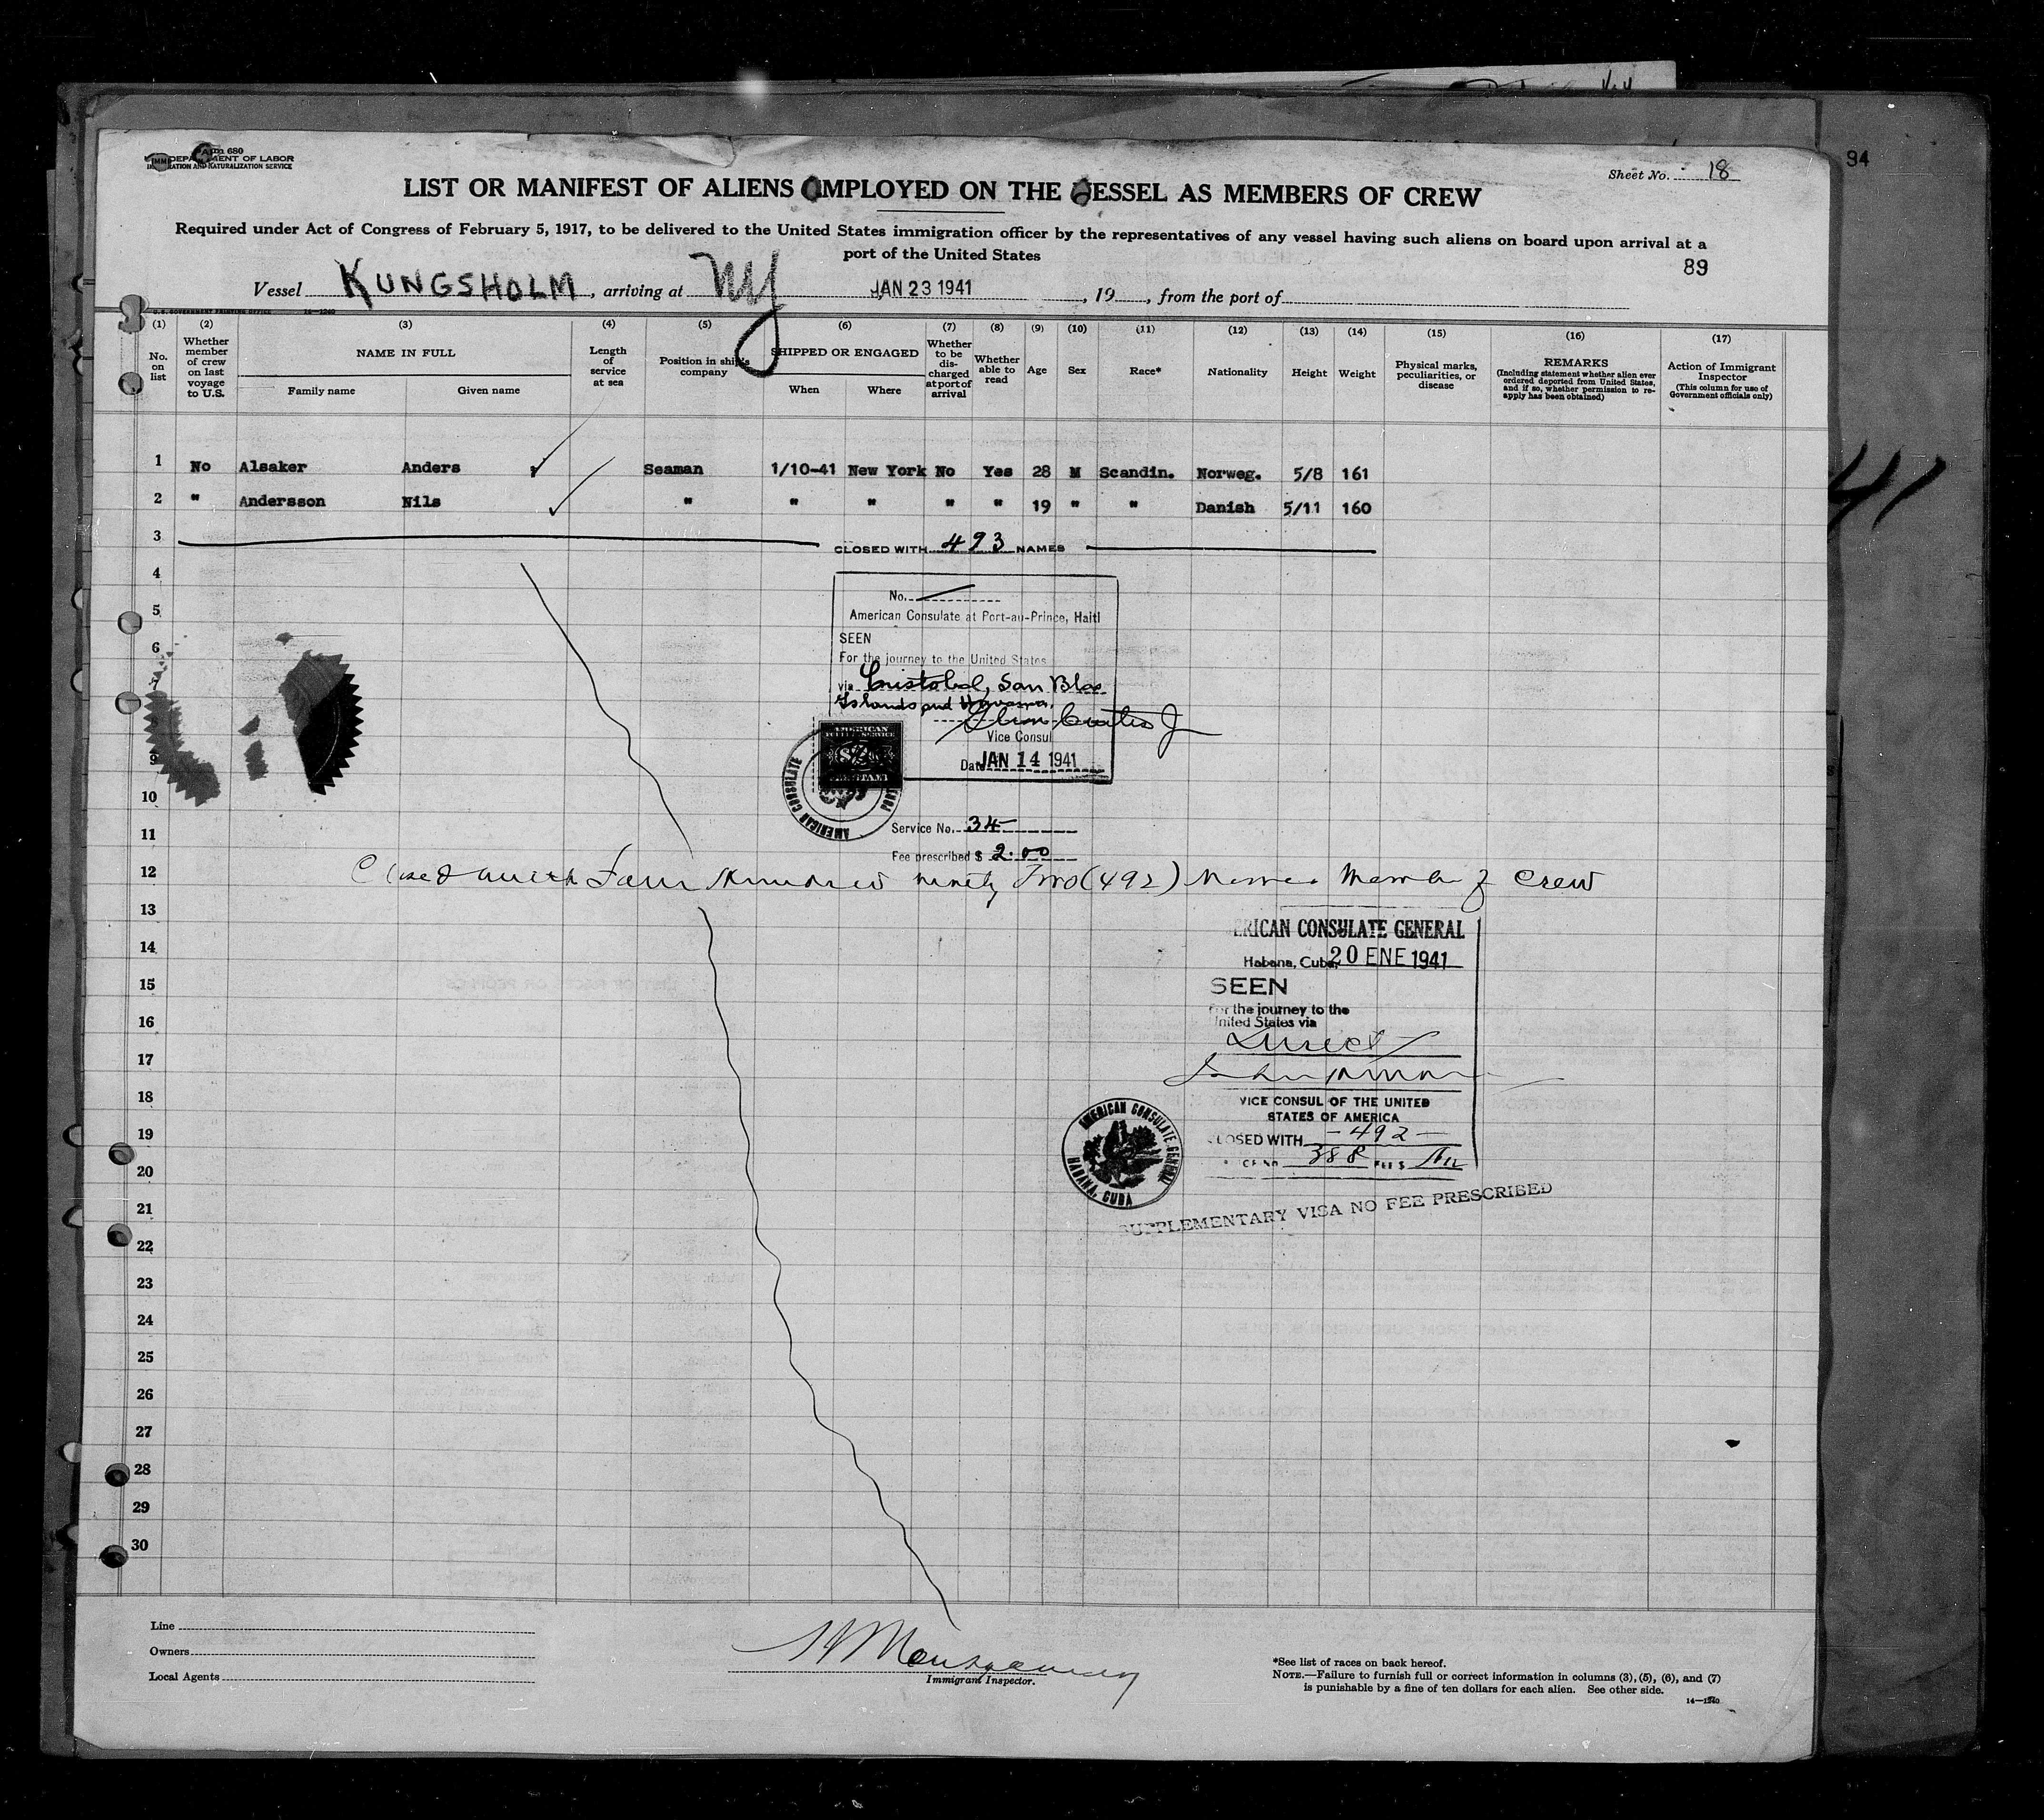 94
Form 680
DEPARTMENT OF LABOR
IMMIGRATION AND NATURALIZATION SERVICE
Sheet No. 18
LIST OR MANIFEST OF ALIENS EMPLOYED ON THE VESSEL AS MEMBERS OF CREW
Required under Act of Congress of February 5, 1917, to be delivered to the United States immigration officer by the representatives of any vessel having such aliens on board upon arrival at a
port of the United States
89
Vessel KUNGSHOLM, arriving at NY JAN 23 1941, 19, from the port of
U.S. GOVERNMENT PRINTING OFFICE 14—1240
(1) (2) (3) (4) (5) (6) (7) (8) (9) (10) (11) (12) (13) (14) (15) (16) (17)
No. on list
Whether member of crew on last voyage to U.S.
NAME IN FULL
Family name Given name
Length of service at sea
Position in ship's company
SHIPPED OR ENGAGED
When Where
Whether to be discharged at port of arrival
Whether able to read
Age
Sex
Race*
Nationality
Height
Weight
Physical marks, peculiarities, or disease
REMARKS
(Including statement whether alien ever ordered deported from United States, and if so, whether permission to reapply has been obtained)
Action of Immigrant Inspector
(This column for use of Government officials only)
1 No Alsaker Anders Seaman 1/10-41 New York No Yes 28 M Scandin. Norweg. 5/8 161
2 " Andersson Nils " " " " " 19 " " Danish 5/11 160
3 CLOSED WITH 493 NAMES
4
No.
5
American Consulate at Port-au-Prince, Haiti
SEEN
6
For the journey to the United States
7
via Cristobal, San Blas
Islands and Havana.
8
Vice Consul
AMERICAN
9
Date JAN 14 1941
AMERICAN CONSULATE
10
11
Service No. 34
Fee prescribed $ 2.00
12 Closed with Four Hundred ninety Two (492) Names Members of Crew
13
AMERICAN CONSULATE GENERAL
14
Habana, Cuba, 20 ENE 1941
15
SEEN
For the journey to the
16
United States via
Direct
17
18
VICE CONSUL OF THE UNITED
STATES OF AMERICA
19
CLOSED WITH -492-
AMERICAN CONSULATE GENERAL
HABANA, CUBA
20
388
21
SUPPLEMENTARY VISA NO FEE PRESCRIBED
22
23
24
25
26
27
28
29
30
41
Line
Owners
Local Agents
Immigrant Inspector.
*See list of races on back hereof.
NOTE.—Failure to furnish full or correct information in columns (3), (5), (6), and (7)
is punishable by a fine of ten dollars for each alien. See other side.
14—1240